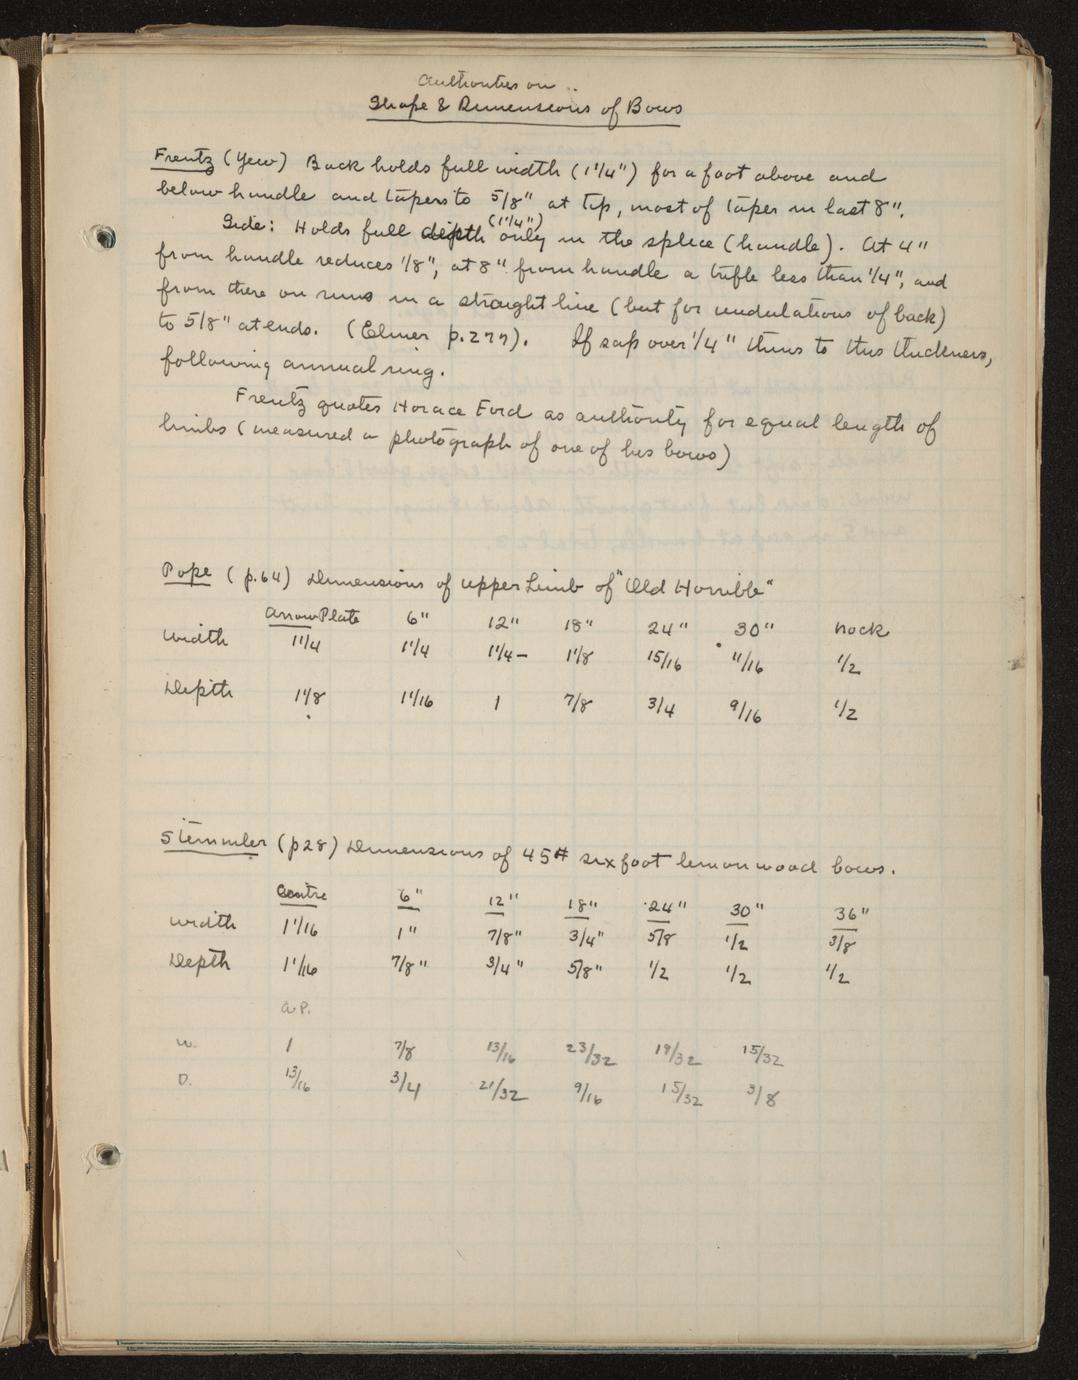 Authorities on
Shape & Dimensions of Bows
Frentz (Yew) Back holds full width (1 1/4") for a foot above and
below handle and tapers to 5/8" at tip, most of taper in last 8".
Side: Holds full depth (1 1/4") only in the splice (handle). At 4"
from handle reduces 1/8", at 8" from handle a trifle less than 1/4", and
from there on runs in a straight line (but for undulations of back)
to 5/8" at ends. (Elmer p.277). If sap over 1/4" thins to this thickness,
following annual ring.
Frentz quotes Horace Ford as authority for equal length of
limbs (measured a photograph of one of his bows)
Pope (p.64) Dimensions of upper Limb of "Old Horrible"
Arrow Plate 6" 12" 18" 24" 30" nock
Width 1 1/4 1 1/4 1 1/4 – 1 1/8 15/16 11/16 1/2
Depth 1 1/8 1 1/16 1 7/8 3/4 9/16 1/2
Stemmler (p28) Dimensions of 45# six foot lemonwood bows.
Centre 6" 12" 18" 24" 30" 36"
Width 1 1/16 1" 7/8" 3/4" 5/8 1/2 3/8
Depth 1 1/16 7/8" 3/4" 5/8" 1/2 1/2 1/2
a.P.
W. 1 7/8 13/16 23/32 19/32 15/32
D. 13/16 3/4 21/32 9/16 15/32 3/8